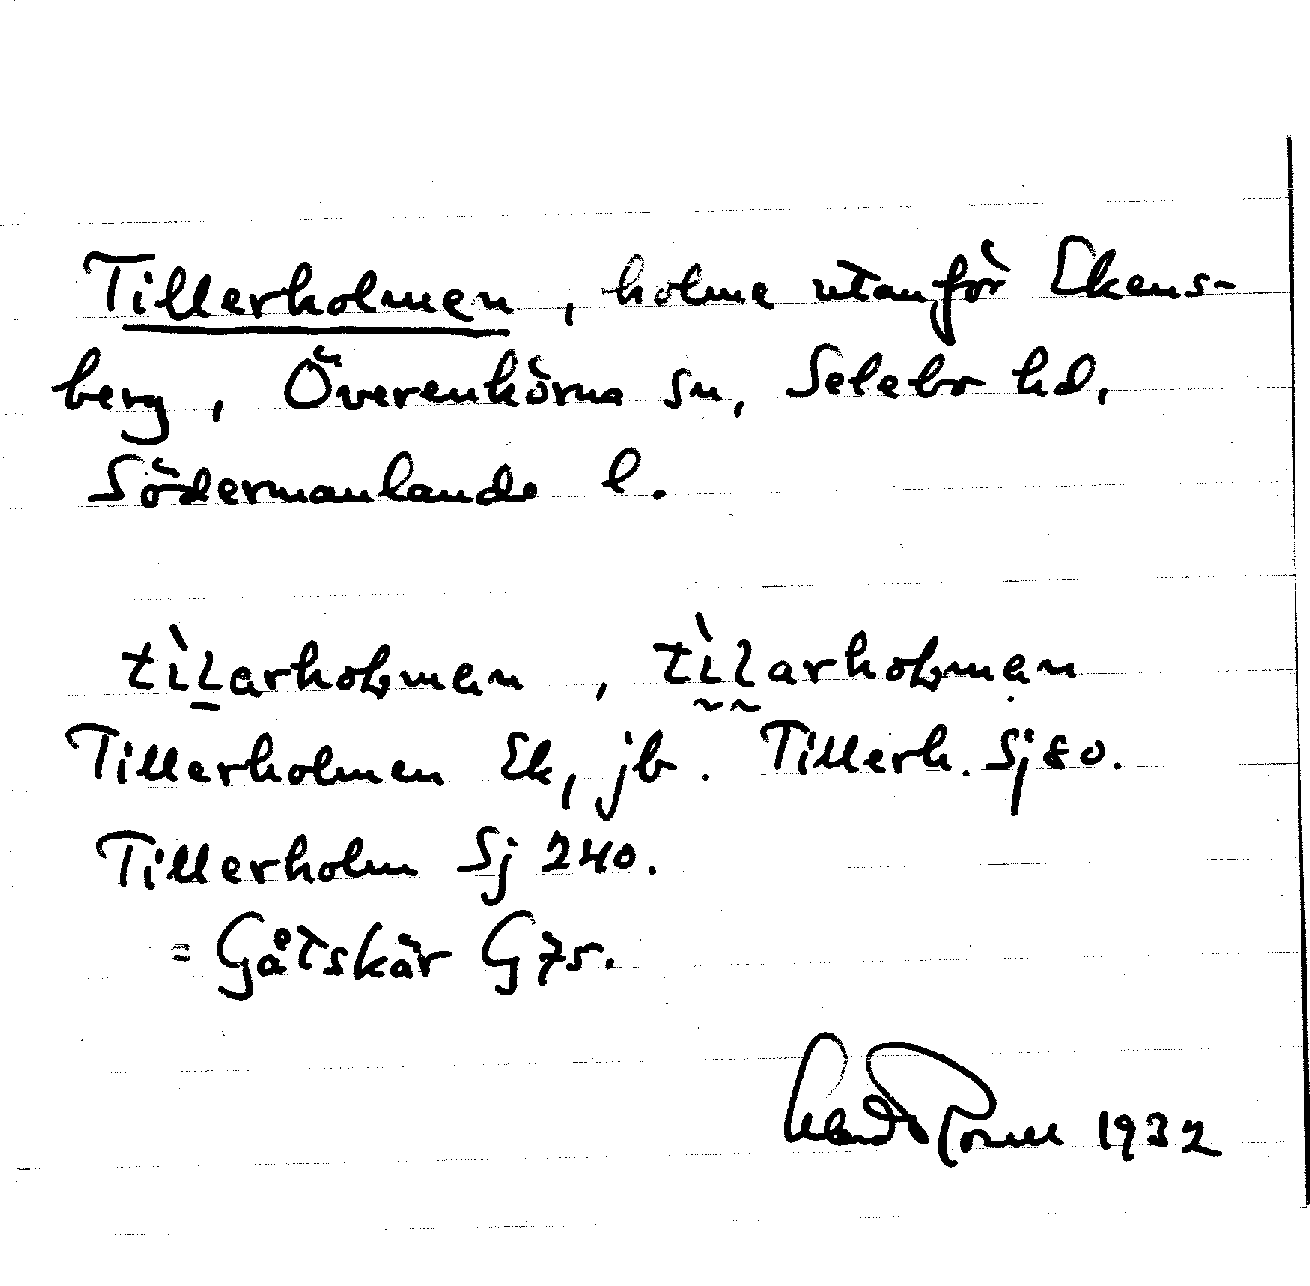 Tillerholmen, holme utanför Ekens-
berg, Överenhörna sn, Selebo hd,
Södermanlands l.
tìlarholmen, tìlarholmen
Tillerholmen Ek, jb. Tillerh. Sj 80.
Tillerholm Sj 240.
= Gåtskär G 75.
1932